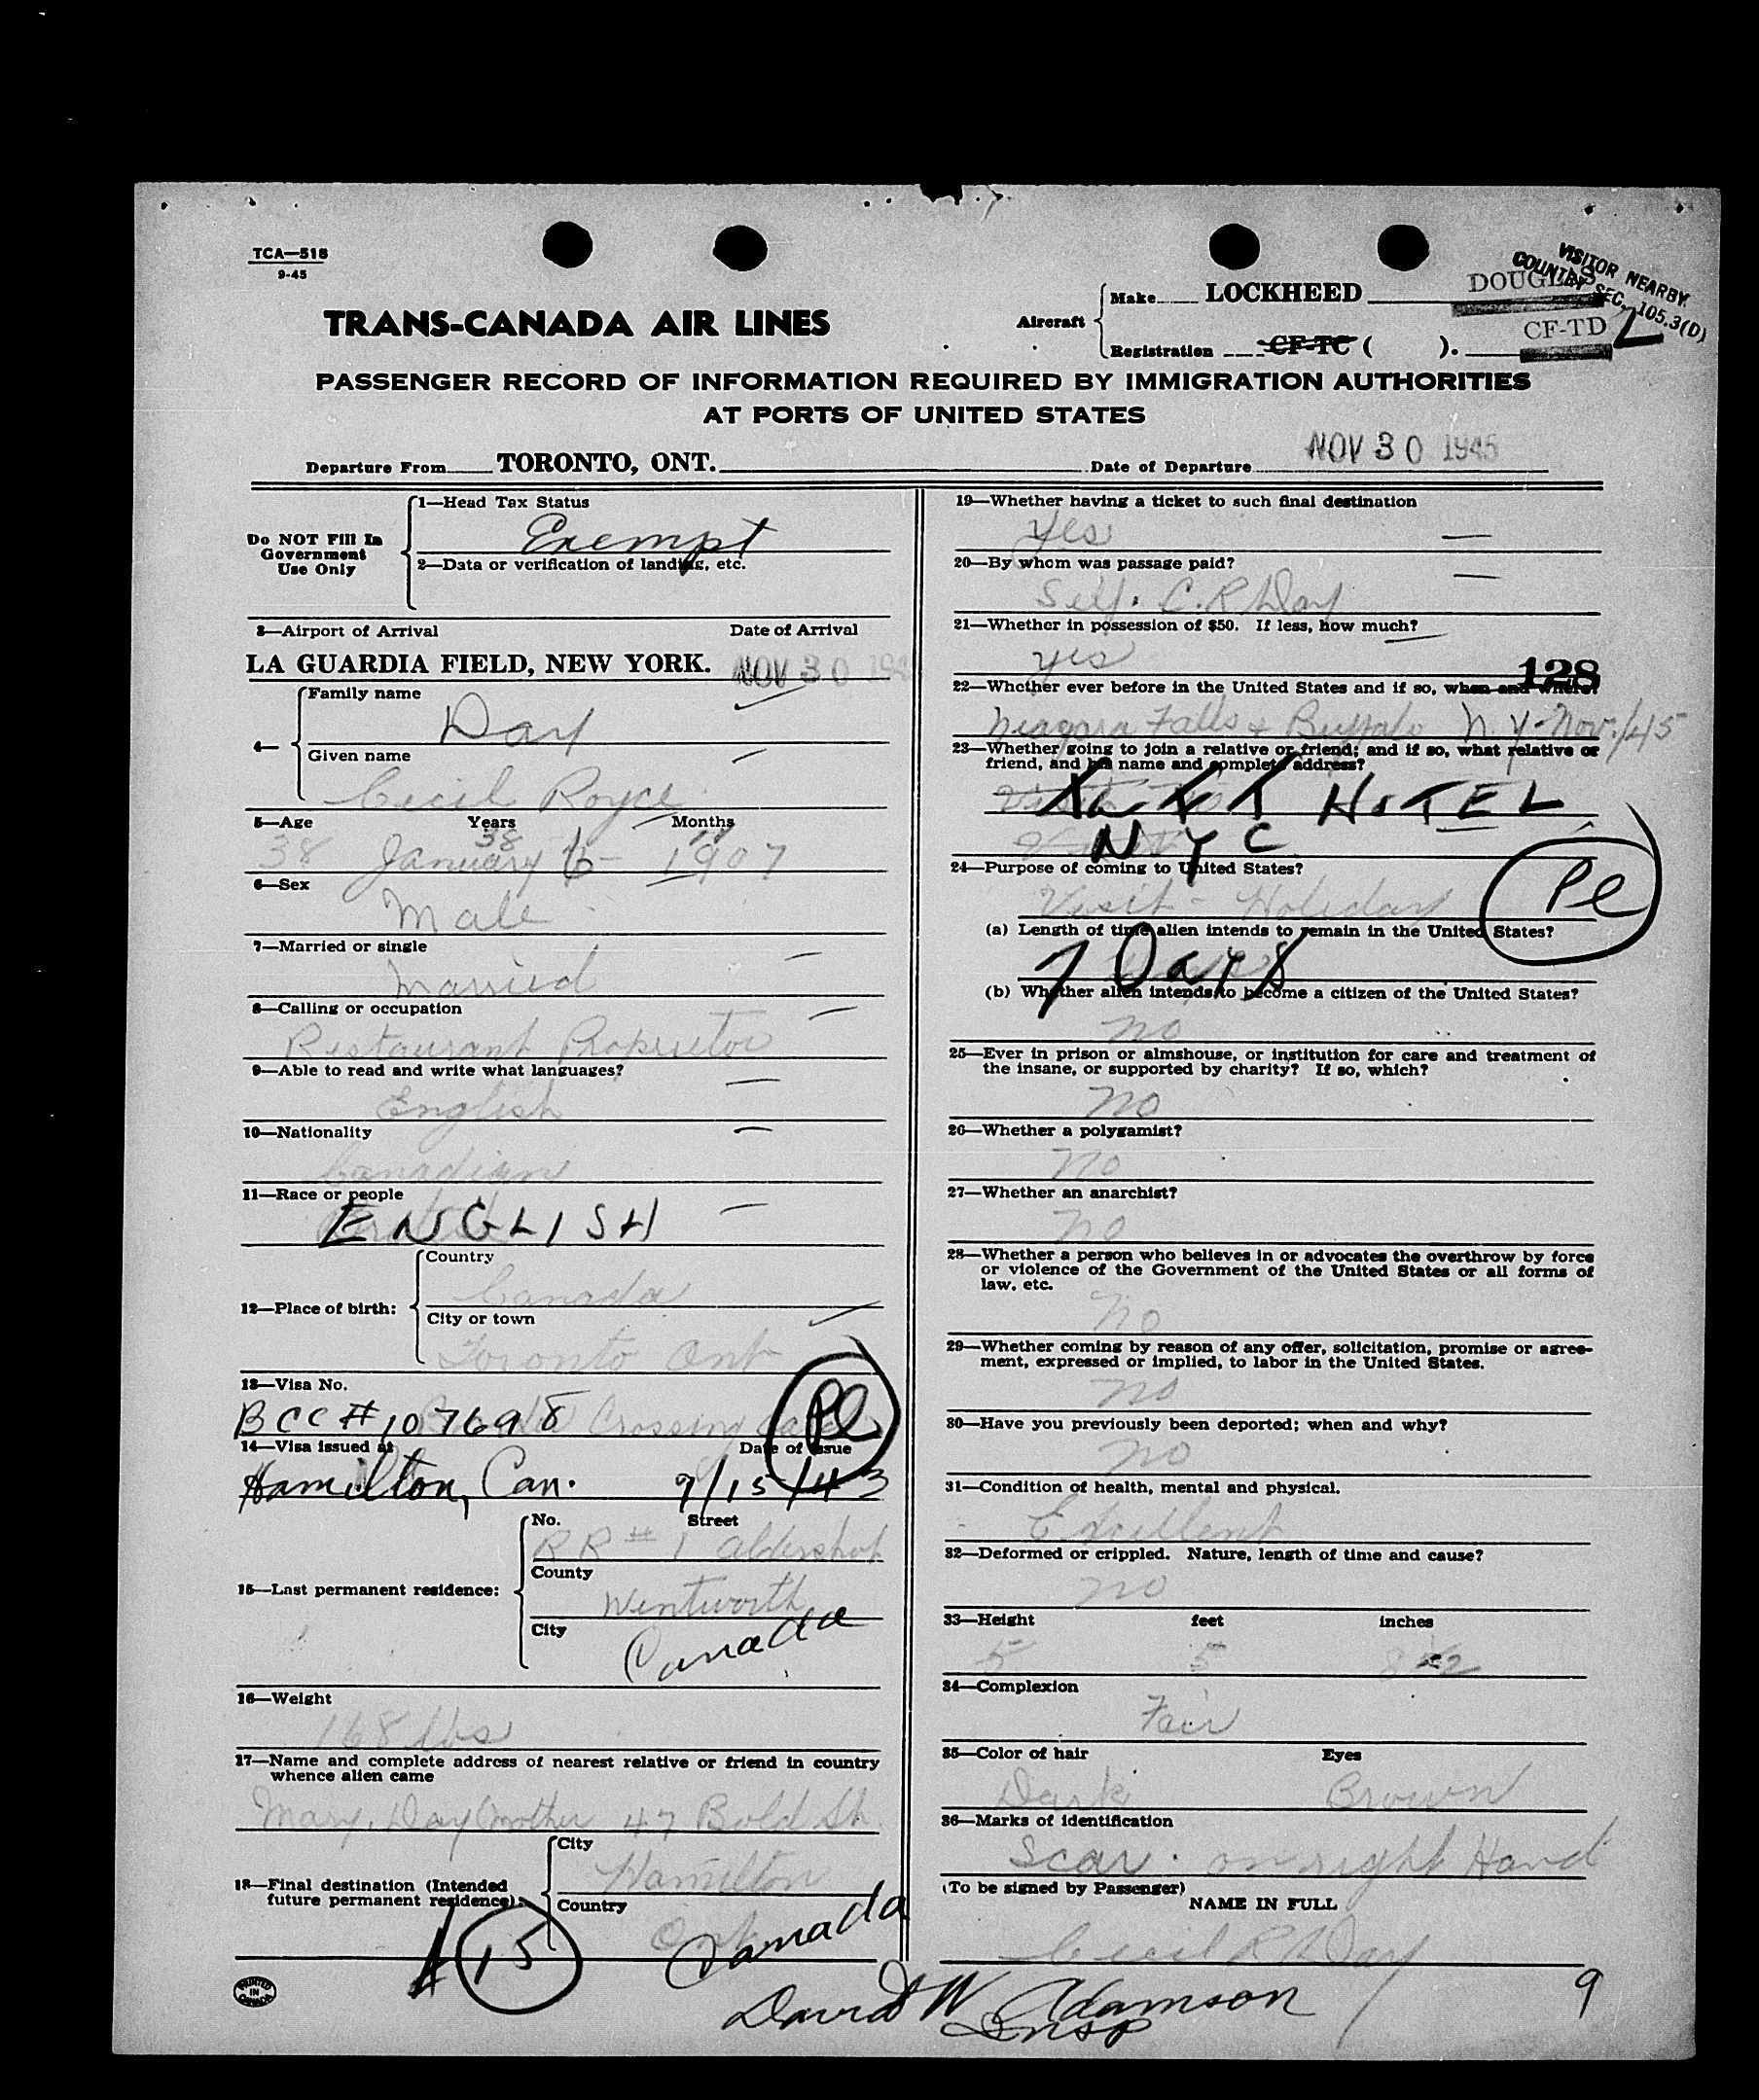 TCA—518
9-45
TRANS-CANADA AIR LINES
Aircraft
Make LOCKHEED
DOUGLAS
Registration CF-TC ( ).
CF-TD
VISITOR NEARBY
COUNTRY SEC. 105.3(D)
PASSENGER RECORD OF INFORMATION REQUIRED BY IMMIGRATION AUTHORITIES
AT PORTS OF UNITED STATES
Departure From TORONTO, ONT.
Date of Departure NOV 30 1945
Do NOT Fill In
Government
Use Only
1—Head Tax Status
Exempt
2—Data or verification of landing, etc.
3—Airport of Arrival Date of Arrival
LA GUARDIA FIELD, NEW YORK. NOV 30 194
4—
Family name
Day
Given name
Cecil Royce
5—Age Years Months
38
38 January 6 - 1907
6—Sex
Male
7—Married or single
Married
8—Calling or occupation
Restaurant Proprietor
9—Able to read and write what languages?
English
10—Nationality
Canadian
11—Race or people
ENGLISH
12—Place of birth:
Country
Canada
City or town
Toronto Ont
13—Visa No.
BCC # 107698 Crossing Card
Pl
14—Visa issued at Date of issue
Hamilton, Can. 9/15/43
15—Last permanent residence:
No. Street
RR # 1 Aldershot
County
Wentworth
City
Canada
16—Weight
168 lbs
17—Name and complete address of nearest relative or friend in country
whence alien came
Mary. Day mother 47 Bold St.
18—Final destination (Intended
future permanent residence).
City
Hamilton
Country
Ont
Canada
15
PRINTED
IN
CANADA
19—Whether having a ticket to such final destination
Yes
20—By whom was passage paid?
Self. C. R Day
21—Whether in possession of $50. If less, how much?
yes
128
22—Whether ever before in the United States and if so, when and where?
Niagara Falls & Buffalo N.Y - Nov./45
23—Whether going to join a relative or friend; and if so, what relative or
friend, and his name and complete address?
TAFT HOTEL
NYC
24—Purpose of coming to United States?
Visit - Holiday
Pl
(a) Length of time alien intends to remain in the United States?
7 Days
(b) Whether alien intends to become a citizen of the United States?
no
25—Ever in prison or almshouse, or institution for care and treatment of
the insane, or supported by charity? If so, which?
no
26—Whether a polygamist?
no
27—Whether an anarchist?
no
28—Whether a person who believes in or advocates the overthrow by force
or violence of the Government of the United States or all forms of
law, etc.
no
29—Whether coming by reason of any offer, solicitation, promise or agree-
ment, expressed or implied, to labor in the United States.
no
30—Have you previously been deported; when and why?
no
31—Condition of health, mental and physical.
Excellent
32—Deformed or crippled. Nature, length of time and cause?
no
33—Height feet inches
5 5 8 1/2
34—Complexion
Fair
35—Color of hair Eyes
Dark Brown
36—Marks of identification
Scar. on right Hand
(To be signed by Passenger)
NAME IN FULL
Cecil R Day
David W Adamson
Insp
9